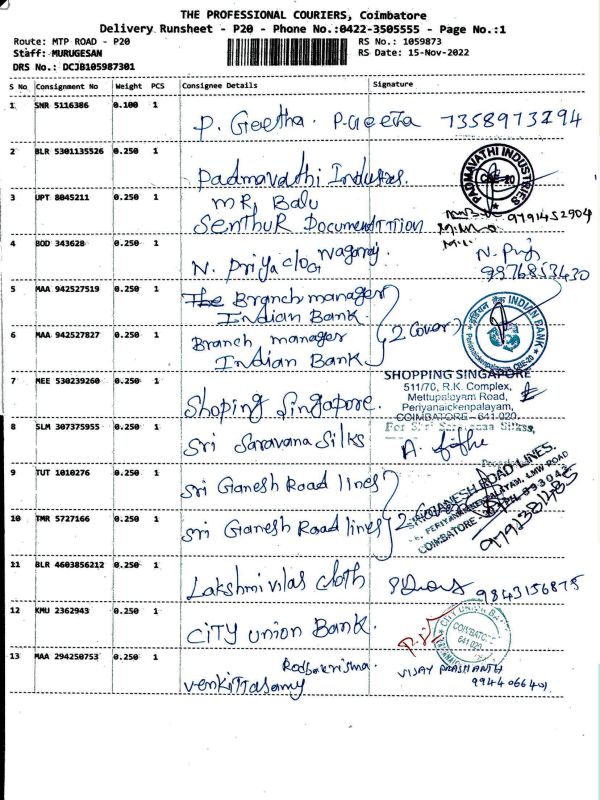 THE PROFESSIONAL COURIERS, Coimbatore
Delivery Runsheet - P20 - Phone No.:0422-3505555 - Page No.:1
Route: MTP ROAD - P20
RS No.: 1059873
Staff: MURUGESAN
RS Date: 15-Nov-2022
DRS No.: DCJB105987301
S No Consignment No Weight PCS Consignee Details Signature
1 SNR 5116386 0.100 1
P. Geetha. P. Geeta 7358973294
2 BLR 5301135526 0.250 1
Padmavathi Industries.
PADMAVATHI INDUSTRIES
CBE-20
3 UPT 8045211 0.250 1
MR. Balu
Senthur Documenttion
9791452904
4 BOD 343628 0.250 1
N. Priya
N. Priya
9976853430
5 MAA 942527519 0.250 1
The Branch manager
Indian Bank.
6 MAA 942527827 0.250 1
Branch manager
Indian Bank
(2 Cover)
INDIAN BANK
CBE-20
7 MEE 530239260 0.250 1
Shoping Singapore.
SHOPPING SINGAPORE
511/70, R.K. Complex,
Mettupalayam Road,
Periyanaickenpalayam,
COIMBATORE - 641 020.
8 SLM 307375955 0.250 1
Sri Saravana Silks
For Sri Saravanaa Silkss,
9 TUT 1010276 0.250 1
Sri Ganesh Road lines
10 TMR 5727166 0.250 1
Sri Ganesh Road lines
SRI GANESH ROAD LINES,
COIMBATORE
9791381485
11 BLR 4603856212 0.250 1
Lakshmi vilas cloth
9843156875
12 KMU 2362943 0.250 1
City union Bank.
CITY UNION BANK
COIMBATORE
641 020
13 MAA 294250753 0.250 1
Radhakrisma.
Venkittasamy
VIJAY PRASHANTH
9944066401